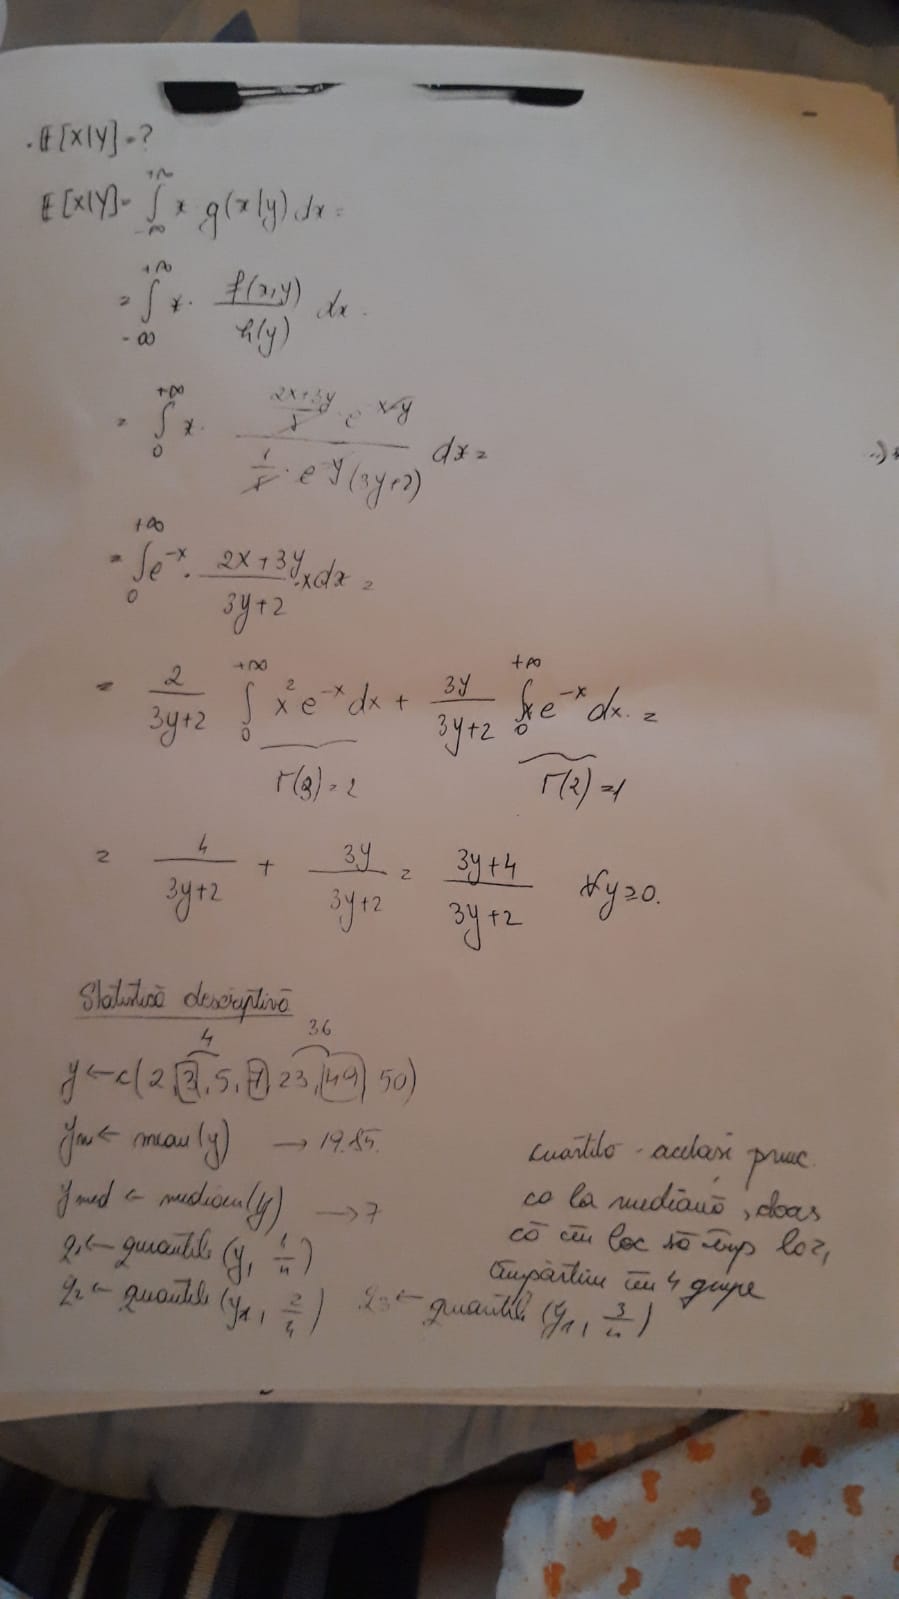 . E[X|Y] = ?
E[X|Y] = ∫_{-∞}^{+∞} x g(x|y) dx =
= ∫_{-∞}^{+∞} x · f(x,y)/h(y) dx
= ∫_0^{+∞} x · ((2x+3y)/5 · e^{-x-y}) / (1/5 · e^{-y}(3y+2)) dx =
= ∫_0^{+∞} e^{-x} · (2x+3y)/(3y+2) · x dx =
= 2/(3y+2) ∫_0^{+∞} x^2 e^{-x} dx + 3y/(3y+2) ∫_0^{+∞} x e^{-x} dx =
Γ(3) = 2 Γ(2) = 1
= 4/(3y+2) + 3y/(3y+2) = (3y+4)/(3y+2) ∀y≥0.
Statistică descriptivă
4 36
y ← c(2, 3, 5, 7, 23, 49, 50)
ym ← mean(y) → 19.85
ymed ← median(y) → 7
q1 ← quantile (y, 1/4)
q2 ← quantile (y1, 2/4) q3 ← quantile (y1, 3/4)
cuartile - același
ca la mediană, doar
că în loc să
împărțim în 4 grupe